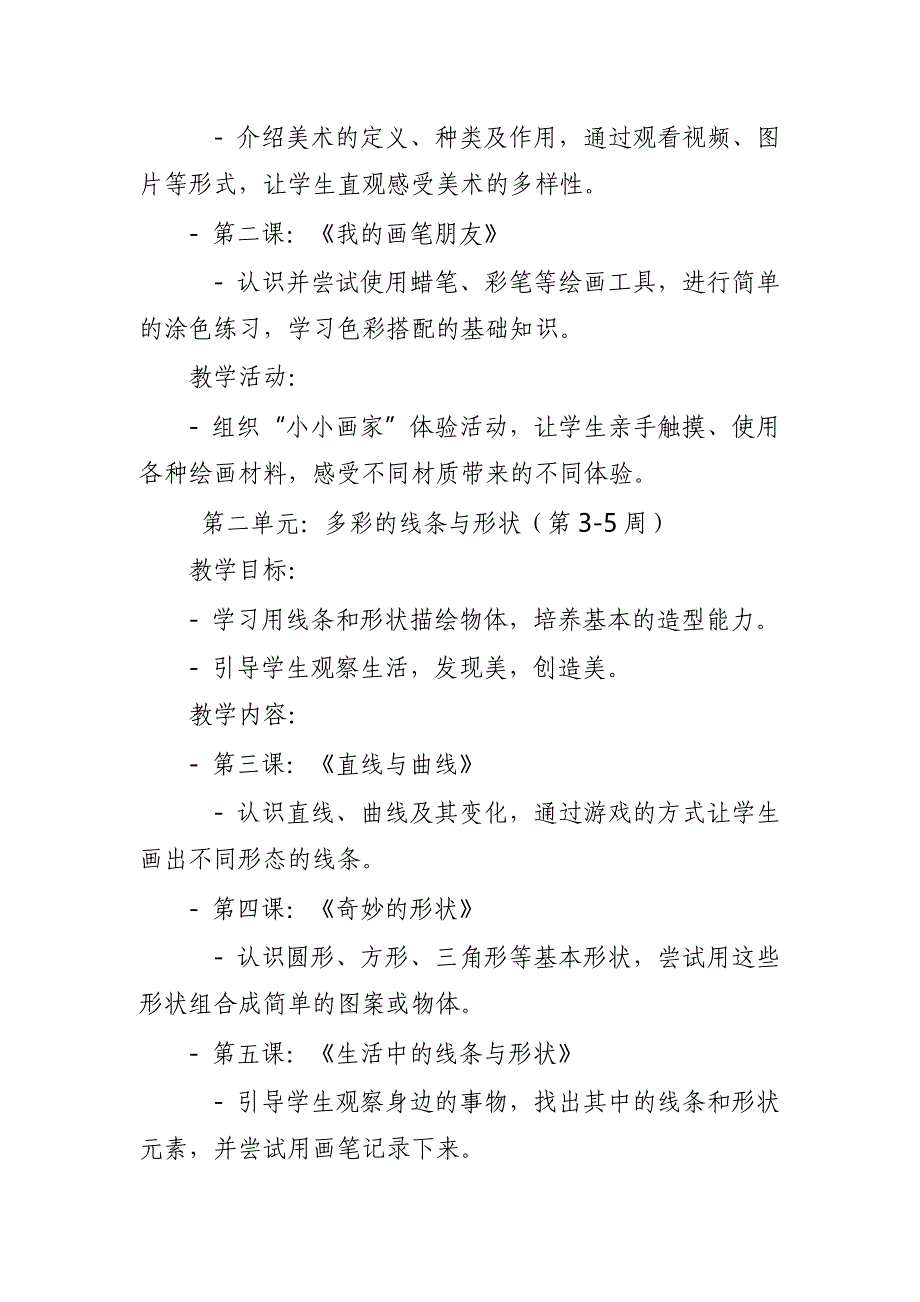 - 介绍美术的定义、种类及作用，通过观看视频、图
片等形式，让学生直观感受美术的多样性。
- 第二课：《我的画笔朋友》
- 认识并尝试使用蜡笔、彩笔等绘画工具，进行简单
的涂色练习，学习色彩搭配的基础知识。
教学活动：
- 组织“小小画家”体验活动，让学生亲手触摸、使用
各种绘画材料，感受不同材质带来的不同体验。
第二单元：多彩的线条与形状（第 3-5 周）
教学目标：
- 学习用线条和形状描绘物体，培养基本的造型能力。
- 引导学生观察生活，发现美，创造美。
教学内容：
- 第三课：《直线与曲线》
- 认识直线、曲线及其变化，通过游戏的方式让学生
画出不同形态的线条。
- 第四课：《奇妙的形状》
- 认识圆形、方形、三角形等基本形状，尝试用这些
形状组合成简单的图案或物体。
- 第五课：《生活中的线条与形状》
- 引导学生观察身边的事物，找出其中的线条和形状
元素，并尝试用画笔记录下来。